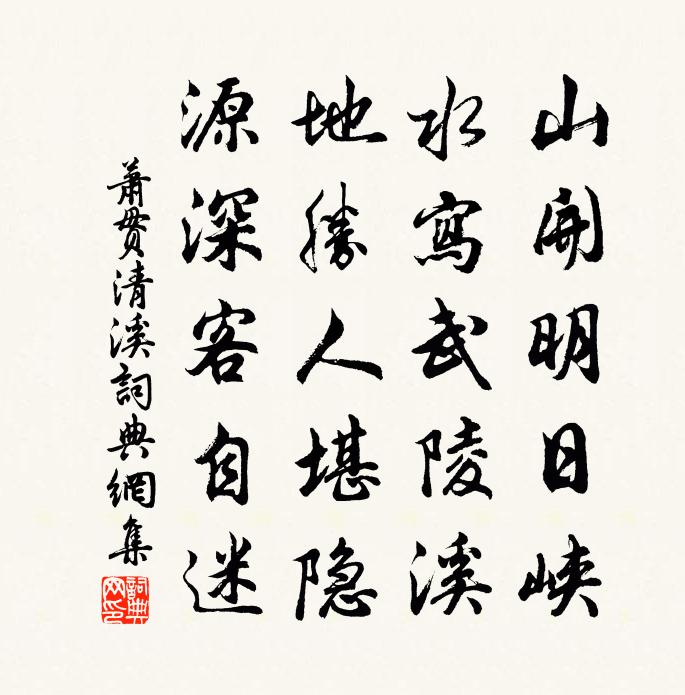 山開明日峽
水寫武陵溪
地勝人堪隐
源深客自迷
蕭贯清溪詞典網集
詞典网印